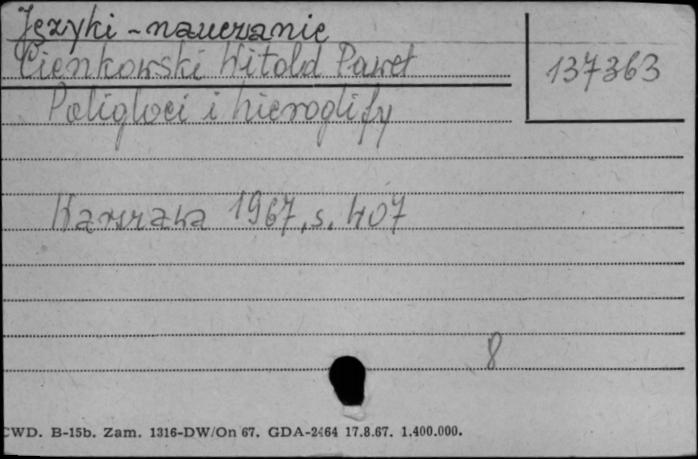 Języki - nauczanie
Cienkowski Witold Paweł
137363
Poligloci i hieroglify
Warszawa 1967, s. 407
8
CWD. B-15b. Zam. 1316-DW/On 67. GDA-2464 17.8.67. 1.400.000.